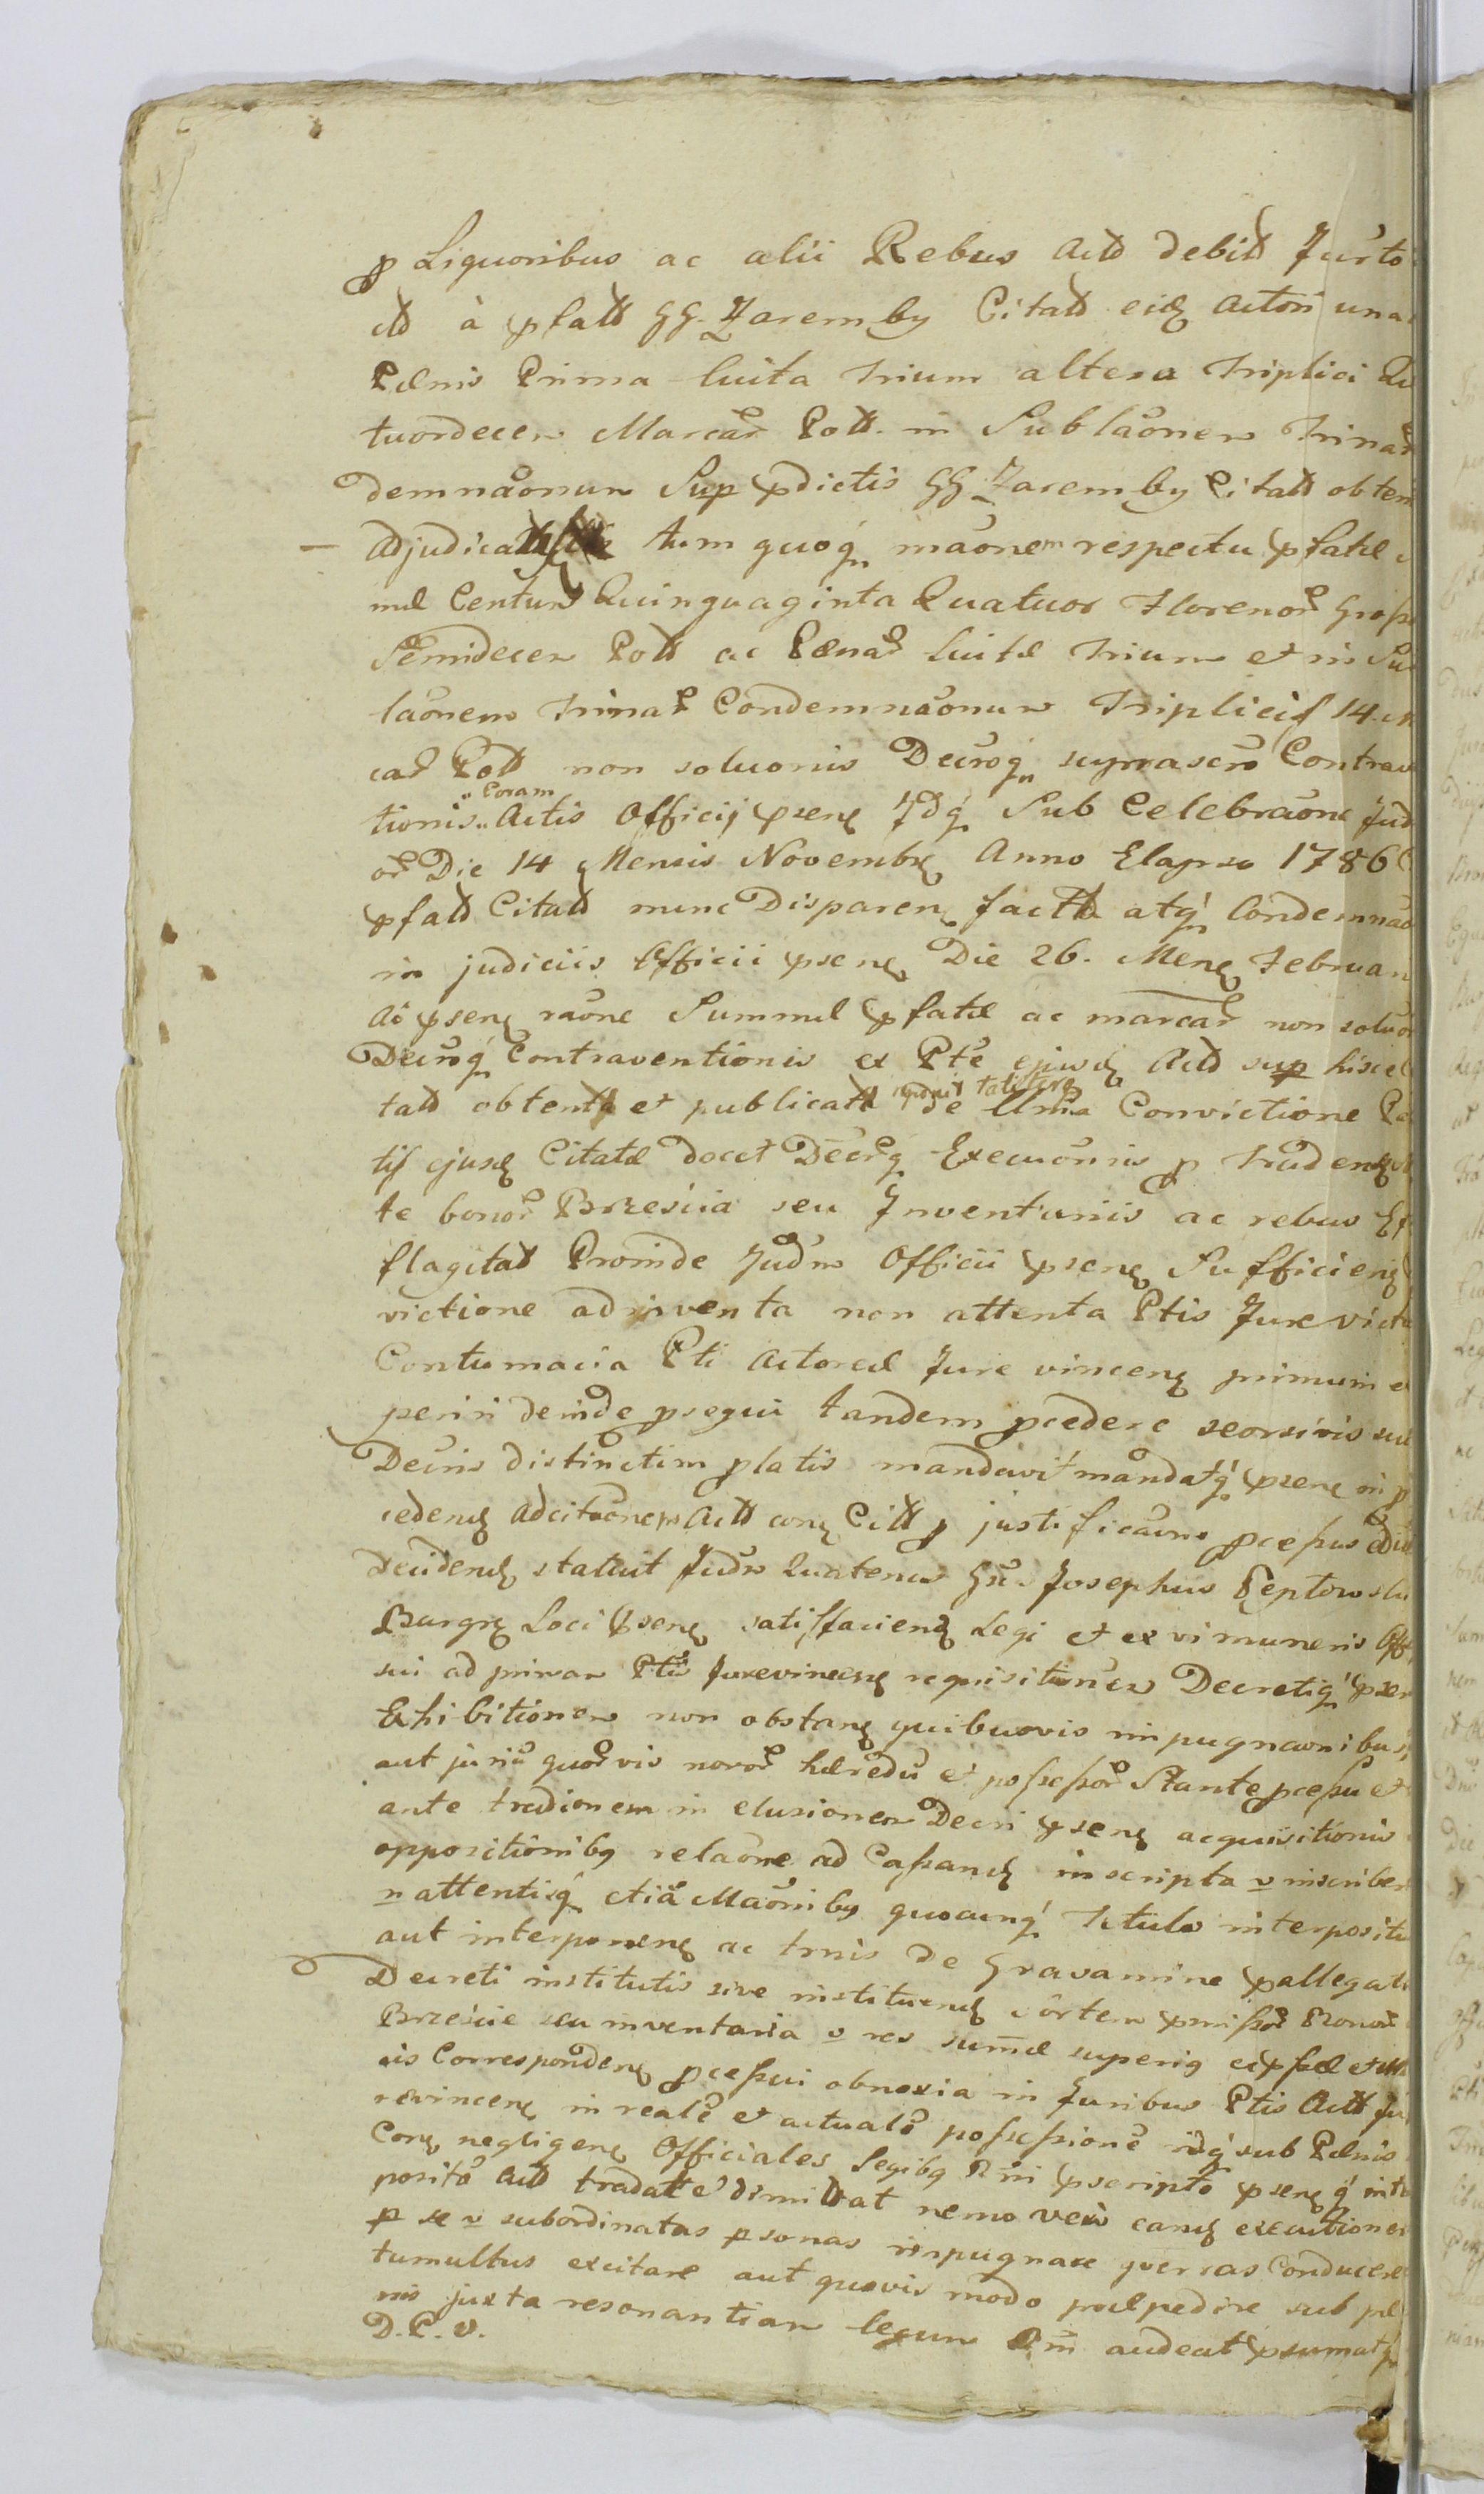 p Liquoribus ac alii Rebus Actt debitt Jurto
à pfatt GG. Zaremby Citatt eidę Actori una
Pænis Prima luita trium altera triplici Qu
tuordecem Marcar̃ Pott. in Sublãonem trinar̃
demnãonum Sup pdictis GG Zaremby Citatt obten
adjudicatt tum quoq́ mãonem respectu pfatæ
mæ Centum Quinquaginta Quatuor Florenor̃ Gross
Semidecem Pott ac Pænar̃ luitæ trium et in Su
lãonem trinar̃ Condemnãonum Triplicis 14. M
car̃ Pott non soluõnis Decroq́ suprascro Contrav
tionis „Coram„ Actis Officij psenę Idq́ Sub Celebrãone Jud
or̃ Die 14 Mensis Novembr̨ Anno Elapso 1786
pfatt Citatt nunc Disparenę factt atq́ Condemnão
in judiciis Officii psenę Die 26. Menę Februar
Aõ psenę rãone Summæ pfatæ ac marcar̃ non soluõ
Decroq́ Contraventionis ex Pte ejusdę Actt sup hisce
tatt obtentt et publicatt de Convictione Pa
tis ejusdę Citatæ docet Decrq́ Execuõnis p tradendę
te bonor̃ Brzescia seu Inventariis ac rebus Ef
flagitatt Proinde Judm Officii psenę Sufficienę
victione adinventa non attenta Ptis Jure victæ
Contumacia Pti Actoreæ Jure vincenę primum e
periri deinde psequi tandem pcedere seorsivis su
Decris distinctim platis mandavit mandatq́ psenę in p
cedenę adcitãonem Actt conę Citt p justificãone pcessus
decidendę statuit Judm Quatenus Gñ. Josephus Peptowski
Burgrę Loci psenę satisfaciendę Legi et ex vi muneris Off
sui ad primam Ptis Jurevincenę requisitionem Decretiq́ psen
Exhibitionem non obstanę quibusvis impugnaõnibus
aut juriũ quor̃vis novor̃ hæredũ et possessor̃ Stante pcessu et
ante tradionem in elusionem Decri psenę acquisitionis
oppositionibq relãone ad Cassandę inscripta v inscriben
n attentisq́ etiã Mãonibq quocunq́ titulo interpositis
aut interponenę ac trnis de Gravamine pallegati
Decreti institutis sive instituendę sortem pmissor̃ Bonor̃
Brzescie seu inventaria v res sum̃æ superiq
is Correspondenę pcessui obnoxia in Juribus Ptis Actt Ju
revincenę in realẽ et actualẽ possessionẽ idq́ sub Pænis
Conę negligenę Officiales legibq Rñi pscripto psenęq́ inter
posito Actt tradat et dimittat nemo vero eandę executionem
p se v subordinatas psonas impugnare gverras conducere
tumultus excitare aut quovis modo præpedire sub pæ
nis juxta resonantiam legum audeat psumatq́
D. P. V.